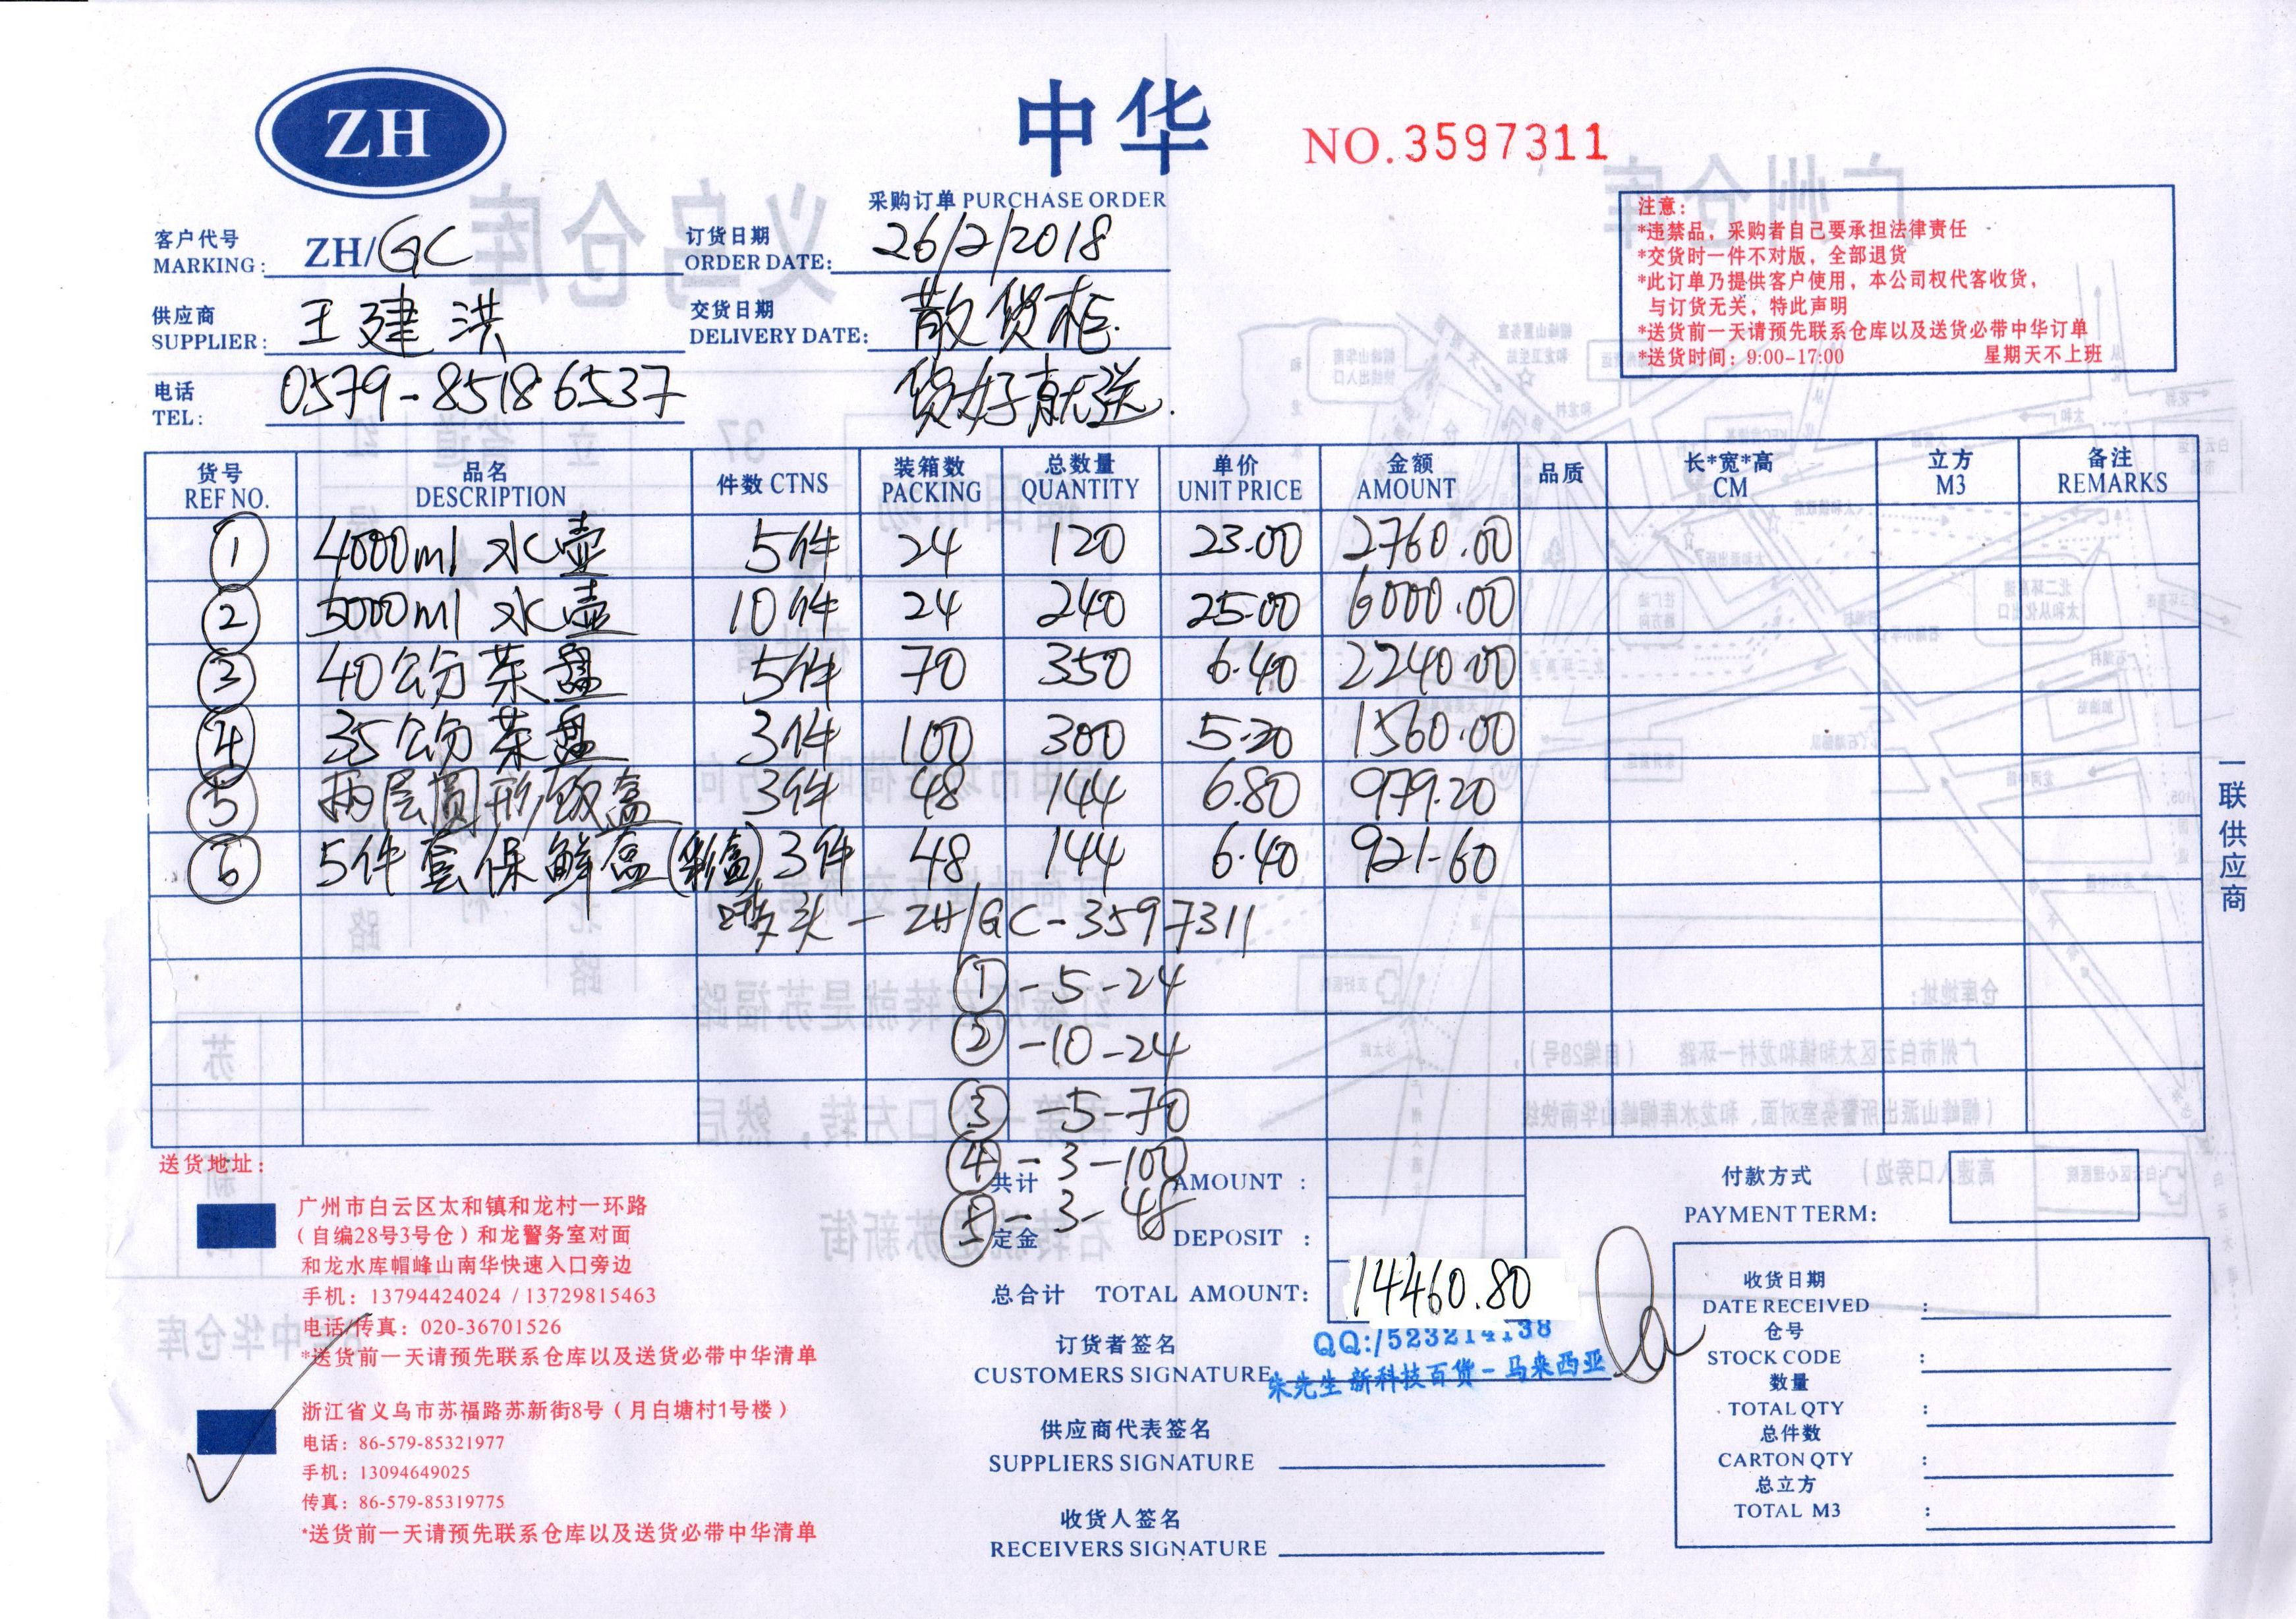 ZH
中华
NO.3597311
采购订单 PURCHASE ORDER
客户代号
MARKING: ZH/GC
订货日期
ORDER DATE: 26/2/2018
供应商
SUPPLIER: 王建洪
交货日期
DELIVERY DATE: 散货柜.
电话
TEL: 0579-85186537
货好就送.
注意:
*违禁品，采购者自己要承担法律责任
*交货时一件不对版，全部退货
*此订单乃提供客户使用，本公司权代客收货，
与订货无关，特此声明
*送货前一天请预先联系仓库以及送货必带中华订单
*送货时间: 9:00-17:00 星期天不上班
货号 品名 件数 CTNS 装箱数 总数量 单价 金额 品质 长*宽*高 立方 备注
REF NO. DESCRIPTION PACKING QUANTITY UNIT PRICE AMOUNT CM M3 REMARKS
① 4000ml 水壶 5件 24 120 23.00 2760.00
② 5000ml 水壶 10件 24 240 25.00 6000.00
③ 40公分茶盘 5件 70 350 6.40 2240.00
④ 35公分茶盘 3件 100 300 5.20 1560.00
⑤ 两层圆形饭盒 3件 48 144 6.80 979.20
⑥ 5件套保鲜盒(彩盒) 3件 48 144 6.40 921-60
唛头-ZH/GC-3597311
①-5-24
②-10-24
③-5-70
④-3-100
⑤-3-48
一联供应商
送货地址:
广州市白云区太和镇和龙村一环路
(自编28号3号仓)和龙警务室对面
和龙水库帽峰山南华快速入口旁边
手机: 13794424024 / 13729815463
电话/传真: 020-36701526
*送货前一天请预先联系仓库以及送货必带中华清单
浙江省义乌市苏福路苏新街8号(月白塘村1号楼)
电话: 86-579-85321977
手机: 13094649025
传真: 86-579-85319775
*送货前一天请预先联系仓库以及送货必带中华清单
共计 AMOUNT :
定金 DEPOSIT :
总合计 TOTAL AMOUNT: 14460.80
订货者签名
CUSTOMERS SIGNATURE
QQ:/523214138
朱先生新科技百货-马来西亚
供应商代表签名
SUPPLIERS SIGNATURE
收货人签名
RECEIVERS SIGNATURE
付款方式
PAYMENT TERM:
收货日期
DATE RECEIVED :
仓号
STOCK CODE :
数量
TOTAL QTY :
总件数
CARTON QTY :
总立方
TOTAL M3 :